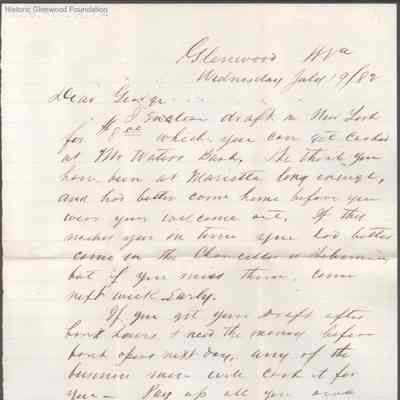 Historic Glenwood Foundation
Glenwood W Va
Wednesday July 19/82
Dear George
I Enclose draft on New York
for $8.00 which you can get cashed
at Mr Waters Bank. We think you
have been at Marietta long enough,
and had better come home before you
wear your welcome out. If this
reaches you in time you had better
come on the Chancellor or
but if you miss them, come
next week Early.
If you get your Draft after
bank hours & need the money before
bank opens next day, any of the
business men will cash it for
you – Pay up all you owe